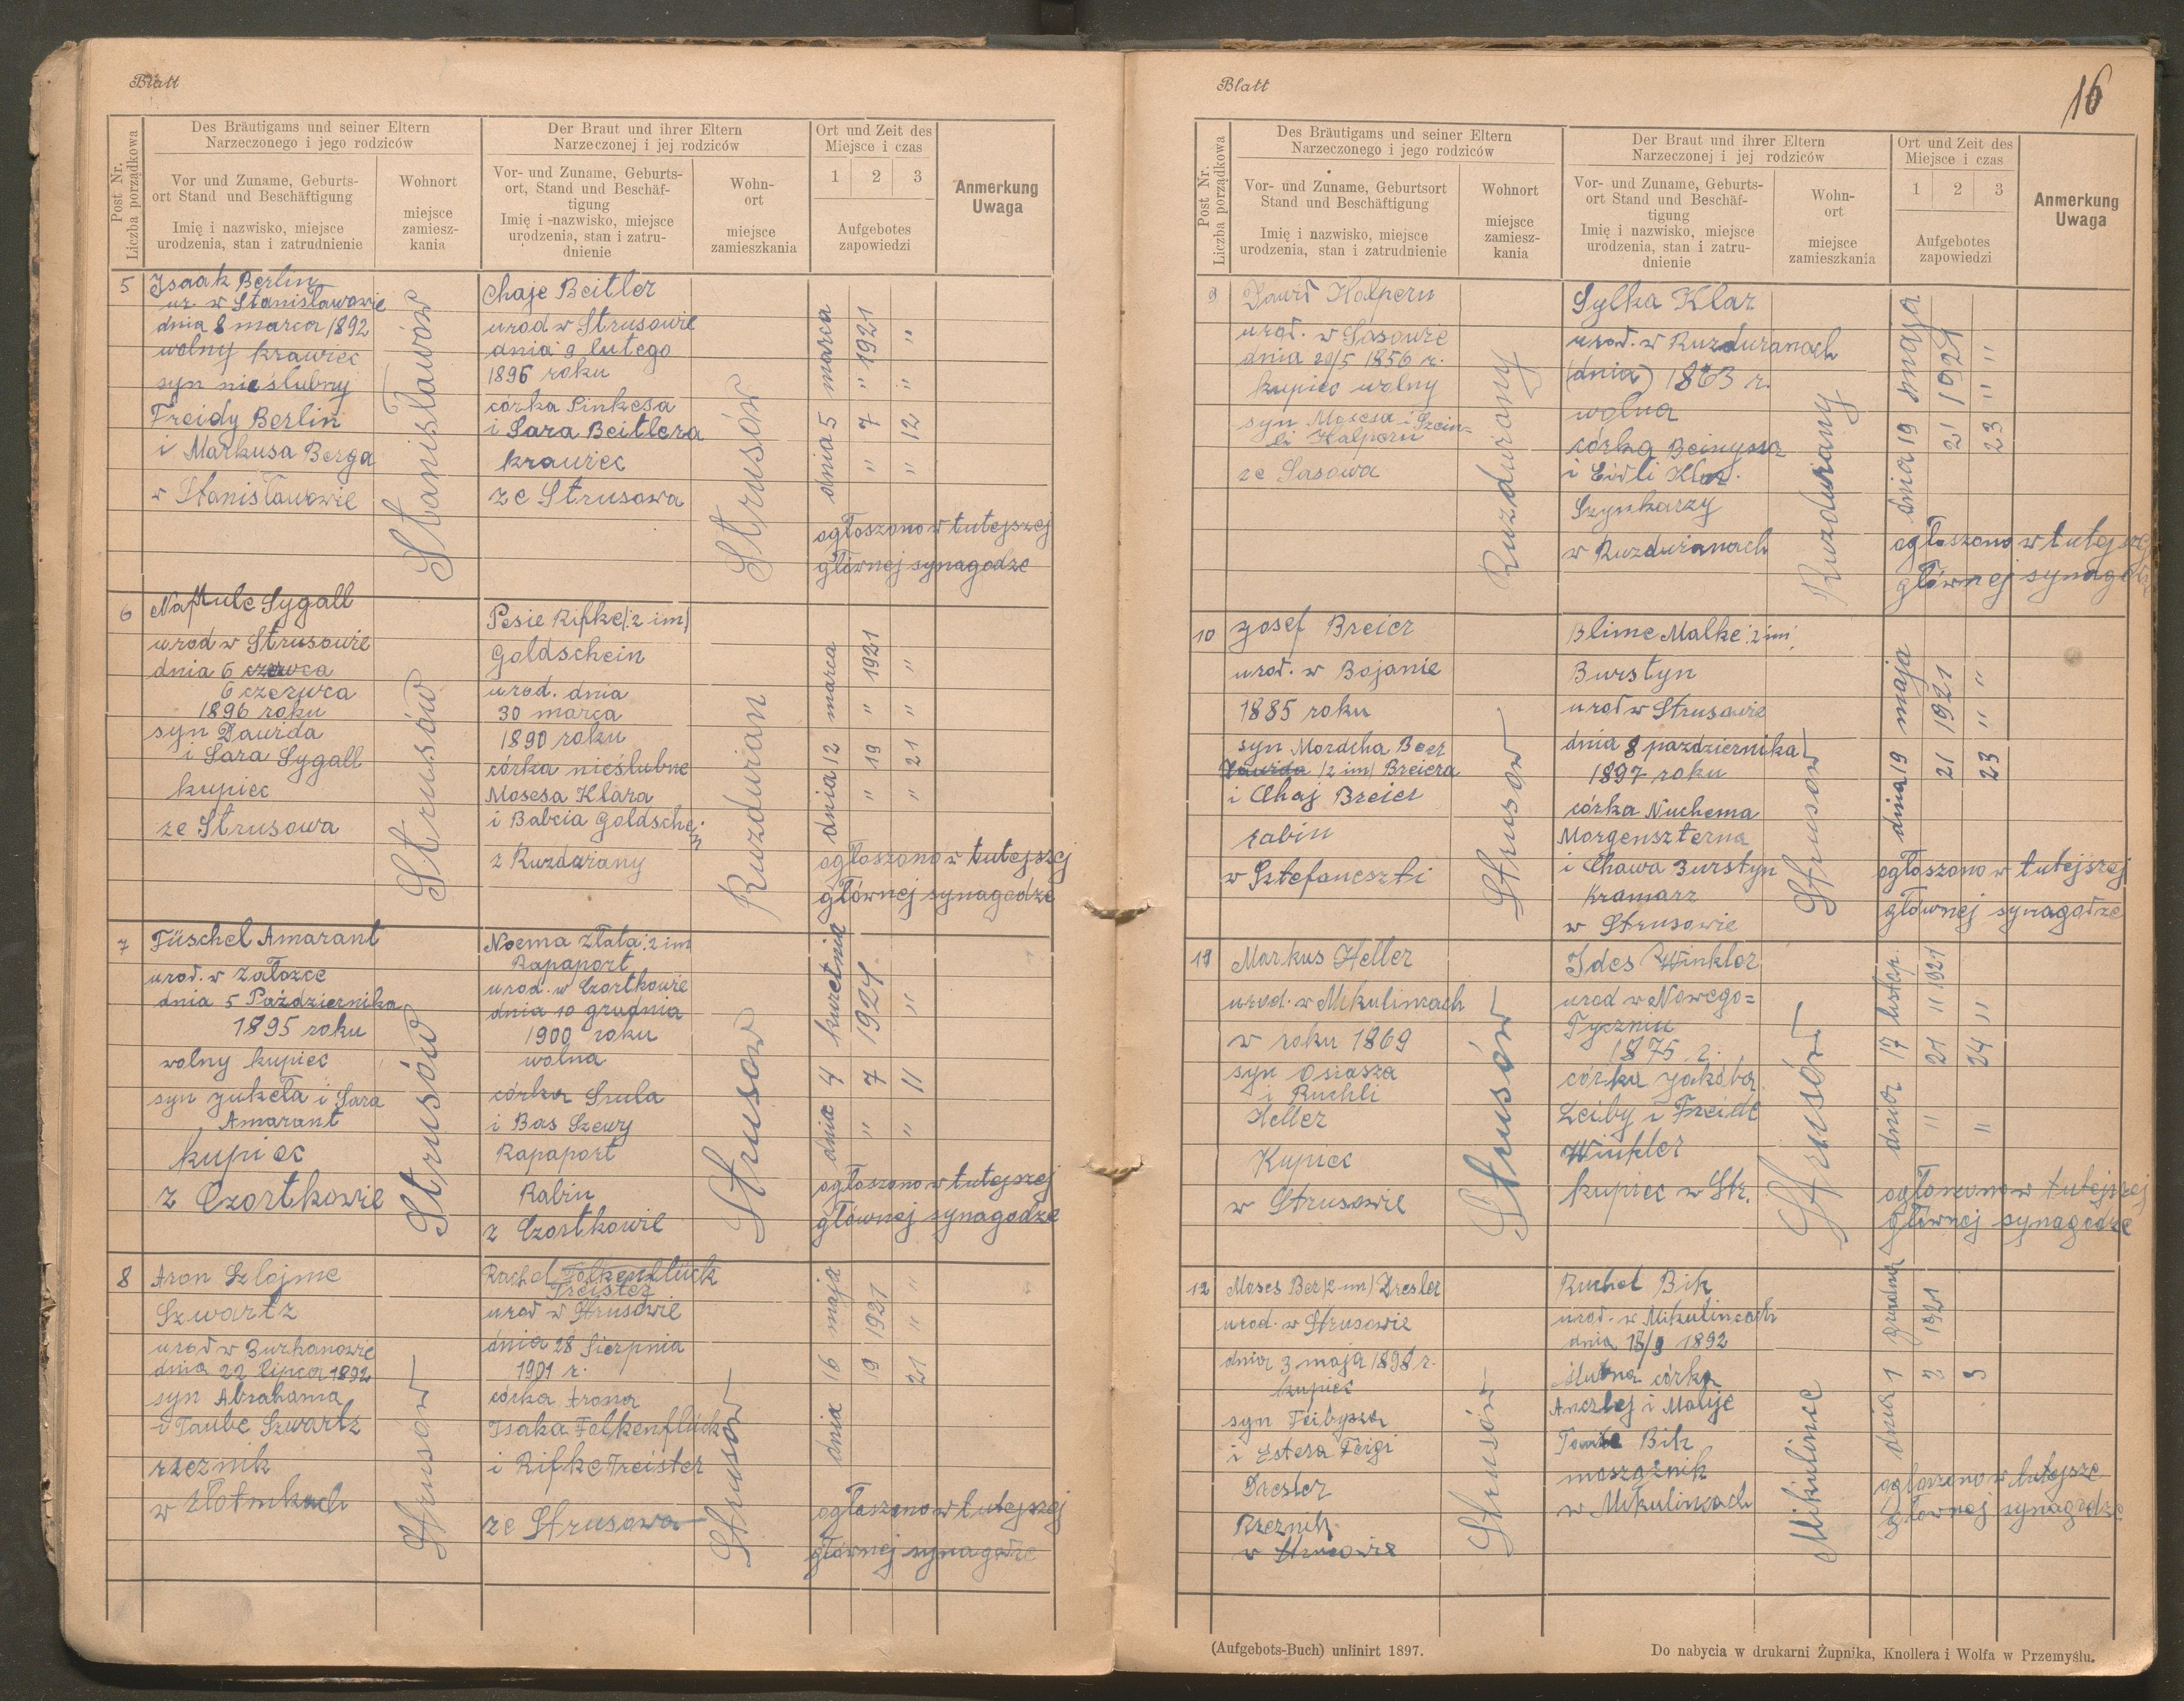 Blatt
Post Nr.
Liczba porządkowa
Des Bräutigams und seiner Eltern
Narzeczonego i jego rodziców
Vor und Zuname, Geburts-
ort Stand und Beschäftigung
Imię i nazwisko, miejsce
urodzenia, stan i zatrudnienie
Wohnort
miejsce
zamiesz-
kania
Der Braut und ihrer Eltern
Narzeczonej i jej rodziców
Vor- und Zuname, Geburts-
ort, Stand und Beschäf-
tigung
Imię i nazwisko, miejsce
urodzenia, stan i zatru-
dnienie
Wohn-
ort
miejsce
zamieszkania
Ort und Zeit des
Miejsce i czas
1 2 3
Aufgebotes
zapowiedzi
Anmerkung
Uwaga
5
Isaak Berlin
ur. w Stanisławowie
dnia 8 marca 1892
wolny krawiec
syn nieślubny
Freidy Berlin
i Markusa Berga
w Stanisławowie
Stanisławów
Chaje Beitler
urod w Strusowie
dnia 9 lutego
1896 roku
corka Pinkesa
i Sara Beitlera
krawiec
ze Strusowa
Strusów
dnia 5 marca
" 7 " 1921
" 12 " "
ogłoszono w tutejszej
głównej synagodze
6
Naftule Sygall
urod w Strusowie
dnia 6 czerwca
6 czerwca
1896 roku
syn Dawida
i Sara Sygall
kupiec
ze Strusowa
Strusów
Pesie Rifke /:2 im/
Goldschein
urod. dnia
30 marca
1890 roku
córka nieślubne
Mosesa Klara
i Babcia Goldschein
z Ruzdwiany
Ruzdwian
dnia 12 marca
" 19 " 1921
" 21 " "
ogłoszono w tutejszej
głównej synagodze
7
Füschel Amarant
urod. w Załozce
dnia 5 Października
1895 roku
wolny kupiec
syn Jukela i Sara
Amarant
kupiec
z Czortkowie
Strusów
Noema Złata :2 im
Rapaport
urod. w Czortkowie
dnia 10 grudnia
1900 roku
wolna
córka Szula
i Bas Szewy
Rapaport
Rabin
z Czortkowie
Strusow
dnia 4 kwietnia
" 7 1921
" 11 "
ogłoszono w tutejszej
głównej synagodze
8
Aron Szlojme
Szwartz
urod w Burkanowie
dnia 22 lipca 1892
syn Abrahama
i Taube Szwartz
rzeznik
w Złotnikach
Strusów
Rachel Falkenflück
Treister
urod w Strusowie
dnia 28 Sierpnia
1901 r.
córka Arona
Isaka Falkenflück
i Rifke Treister
ze Strusowa
Strusow
dnia 16 maja
19 1921
21 " "
ogłoszono w tutejszej
głównej synagodze
Blatt
16
Post Nr.
Liczba porządkowa
Des Bräutigams und seiner Eltern
Narzeczonego i jego rodziców
Vor- und Zuname, Geburtsort
Stand und Beschäftigung
Imię i nazwisko, miejsce
urodzenia, stan i zatrudnienie
Wohnort
miejsce
zamiesz-
kania
Der Braut und ihrer Eltern
Narzeczonej i jej rodziców
Vor- und Zuname, Geburts-
ort, Stand und Beschäf-
tigung
Imię i nazwisko, miejsce
urodzenia, stan i zatru-
dnienie
Wohn-
ort
miejsce
zamieszkania
Ort und Zeit des
Miejsce i czas
1 2 3
Aufgebotes
zapowiedzi
Anmerkung
Uwaga
9
Dawid Halpern
urod. w Sasowie
dnia 20/5 1856 r.
kupiec wolny
syn Mosesa i Szein=
li Halpern
ze Sasowa
Ruzdwiany
Sylka Klar
urod. w Ruzdwianach
(dnia) 1863 r.
wolna
córka Beinysza
i Eidli Klar.
Szynkarzy
w Ruzdwianach
Ruzdwiany
dnia 19 maja
21 1921
23 " "
ogłoszono w tutejszej
głównej synagodze
10
Josef Breier
urod. w Bojanie
1885 roku
syn Mordcha Beer
Dawida /2 im/ Breiera
i Chaj Breier
rabin
w Sztefaneszti
Strusow
Blime Malke :2 im:
Burstyn
urod w Strusowie
dnia 8 pazdziernika
1897 roku
córka Nuchema
Morgenszterna
i Chawa Burstyn
Kramarz
w Strusowie
Strusow
dnia 19 maja
21 1921
23 " "
ogłoszono w tutejszej
głównej synagodze
11
Markus Heller
urod. w Mikulincach
w roku 1869
syn Osiasza
i Ruchli
Heller
Kupiec
w Strusowie
Strusów
Ides Winkler
urod w Nowego=
Tyczniu
1875 r.
córka Jakóba
Leiby i Freide
Winkler
kupiec w Str.
Strusów
dnia 17 listop.
" 21 " 1921
" 24 "
ogłoszono w tutejszej
głównej synagodze
12
Moses Ber /2 im/ Dresler
urod. w Strusowie
dnia 3 maja 1898 r.
kupiec
syn Feibysza
i Estera Feigi
Dresler
Rzeznik
w Strusowie
Strusów
Ruchel Bik
urod. w Mikulincach
dnia 18/9 1892
ślubna córka
Anczlej i Malije
Bik
mosząznik
w Mikulincach
Mikulince
dnia 1 grudnia
2 1921
3
ogłoszono w tutejsze
głównej synagodze
(Aufgebots-Buch) unlinirt 1897.
Do nabycia w drukarni Żupnika, Knollera i Wolfa w Przemyślu.